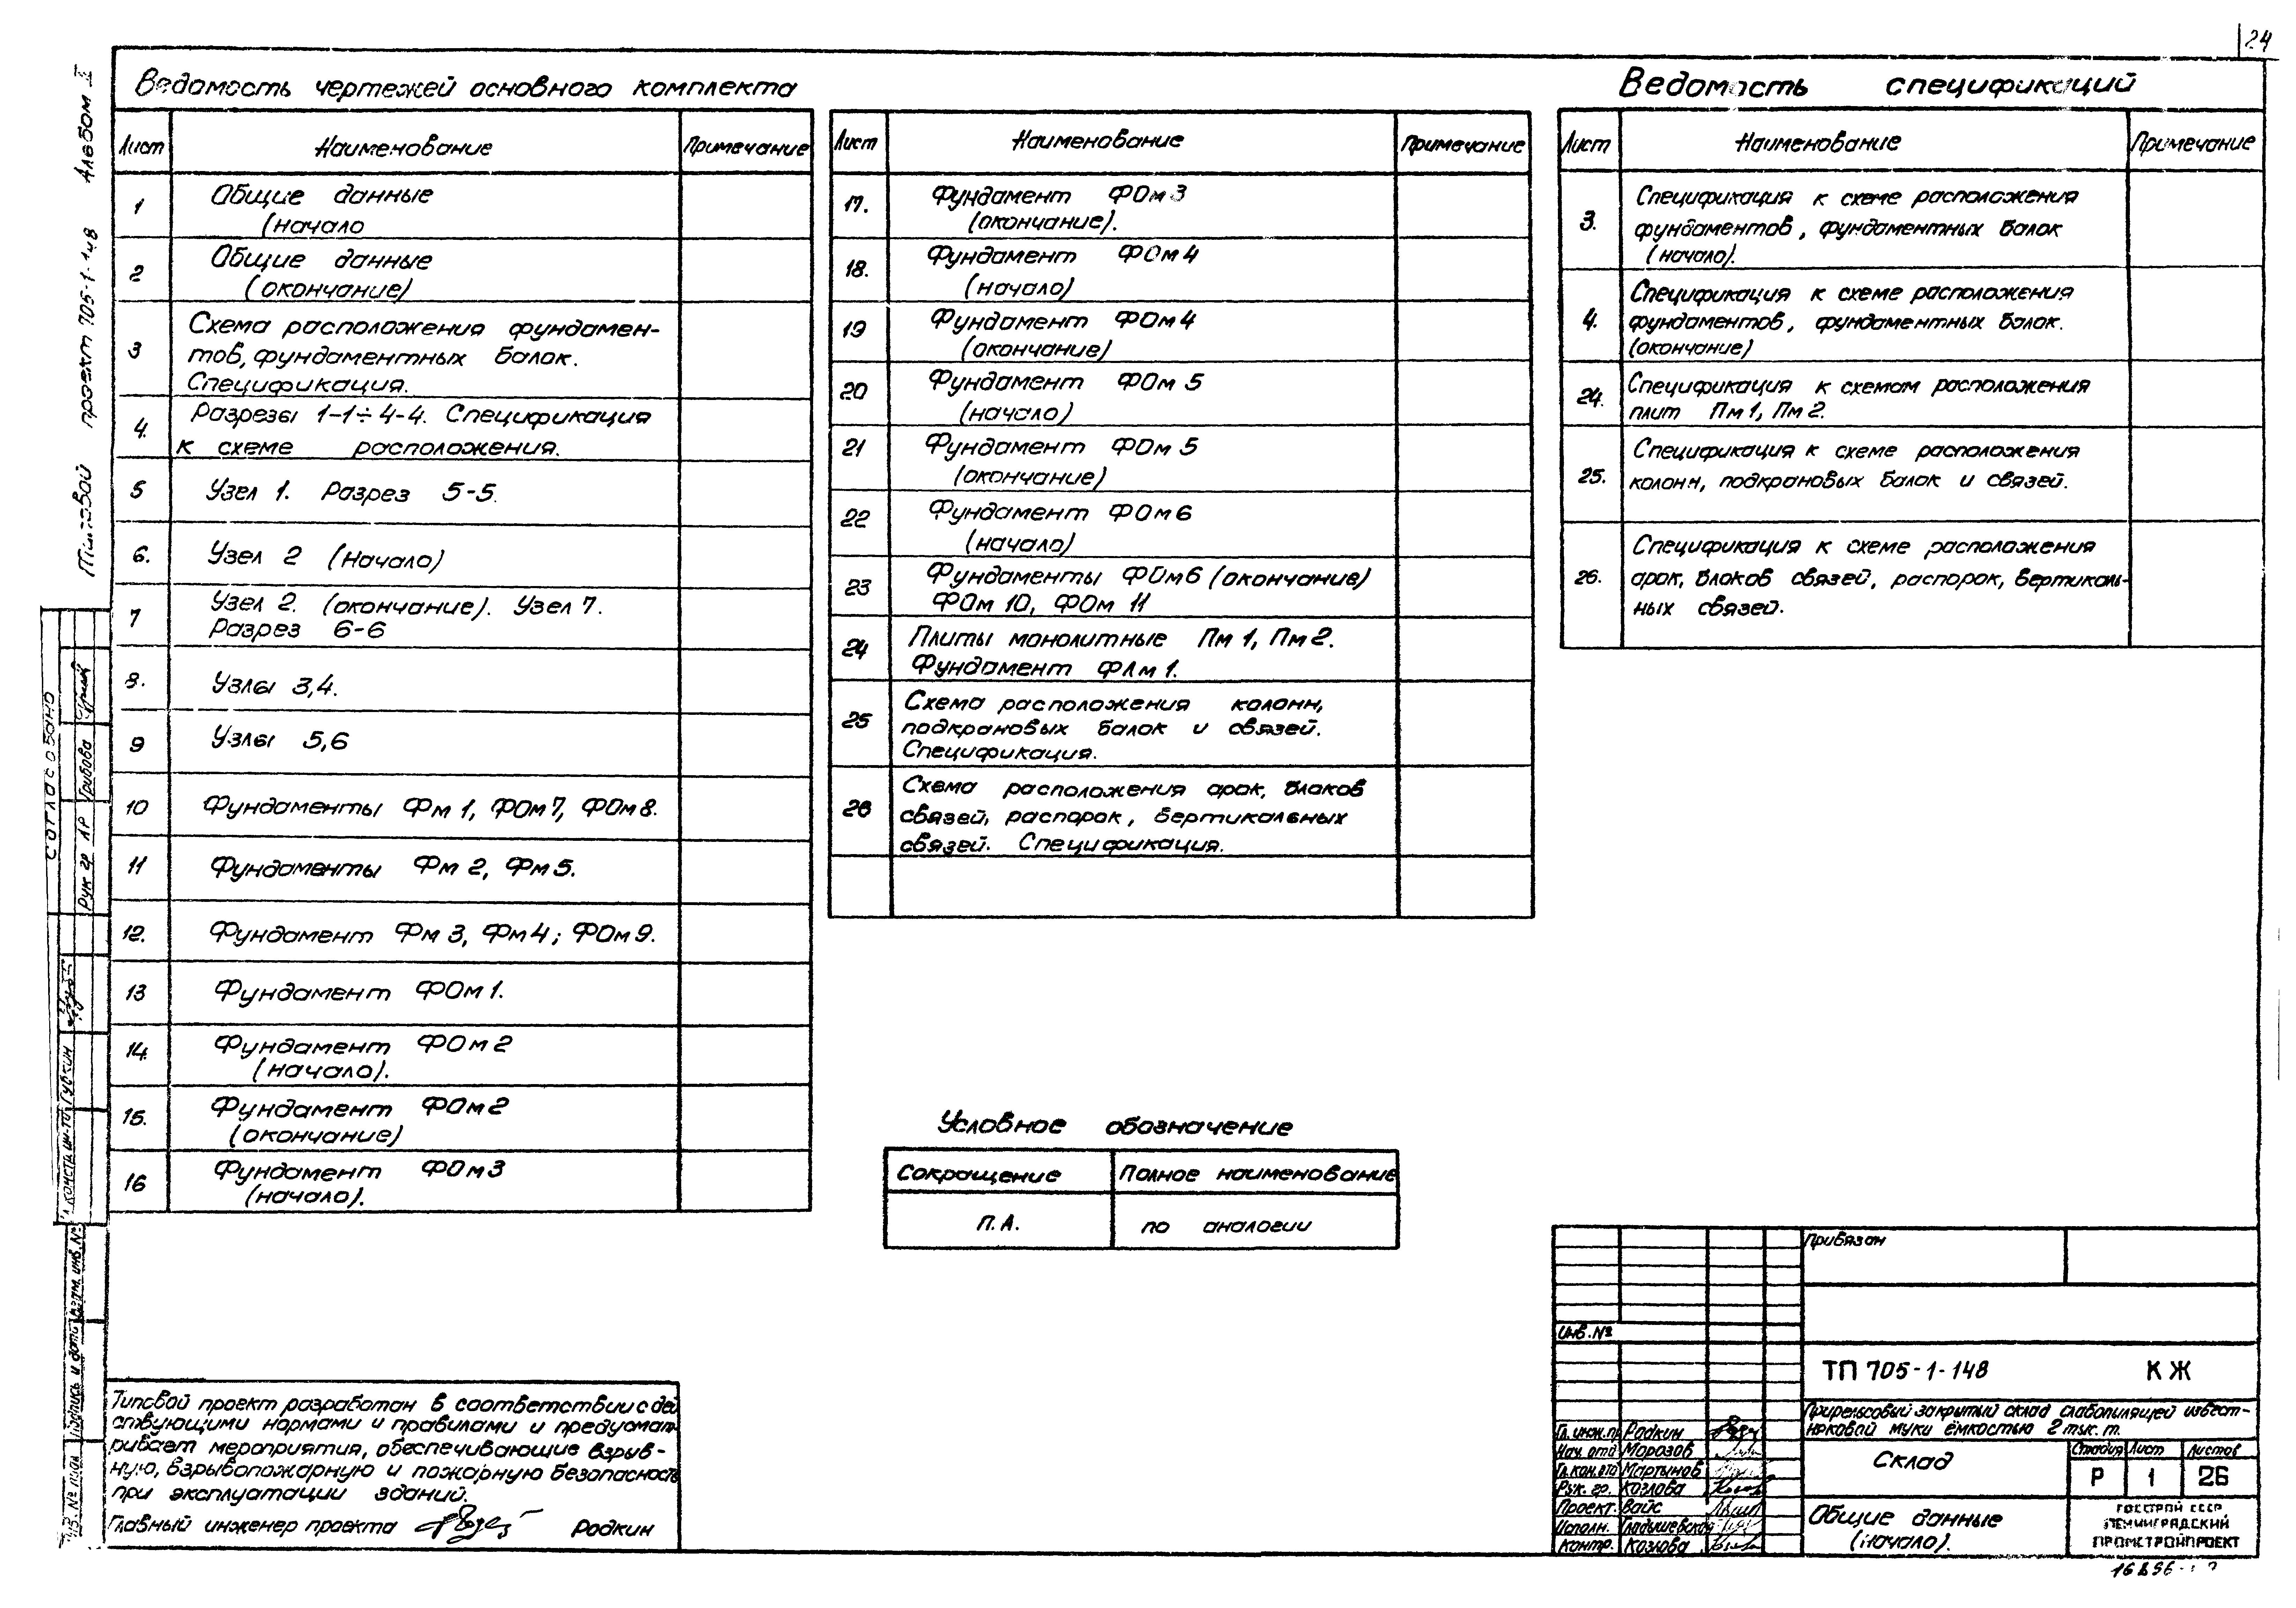 24
Ведомость чертежей основного комплекта
Лист Наименование Примечание
1 Общие данные
(начало
2 Общие данные
(окончание)
3 Схема расположения фундамен-
тов, фундаментных балок.
Спецификация.
4. Разрезы 1-1÷4-4. Спецификация
к схеме расположения.
5 Узел 1. Разрез 5-5.
6. Узел 2 (начало)
7 Узел 2. (окончание). Узел 7.
Разрез 6-6
8. Узлы 3,4.
9 Узлы 5,6
10 Фундаменты Фм 1, ФОм 7, ФОм 8.
11 Фундаменты Фм 2, Фм 5.
12. Фундамент Фм 3, Фм 4; ФОм 9.
13 Фундамент ФОм 1.
14. Фундамент ФОм 2
(начало).
15. Фундамент ФОм 2
(окончание)
16 Фундамент ФОм 3
(начало).
Лист Наименование Примечание
17. Фундамент ФОм 3
(окончание).
18. Фундамент ФОм 4
(начало)
19 Фундамент ФОм 4
(окончание)
20 Фундамент ФОм 5
(начало)
21 Фундамент ФОм 5
(окончание)
22 Фундамент ФОм 6
(начало)
23 Фундаменты ФОм 6 (окончание)
ФОм 10, ФОм 11
24 Плиты монолитные Пм 1, Пм 2.
Фундамент ФЛм 1.
25 Схема расположения колонн,
подкрановых балок и связей.
Спецификация.
26 Схема расположения арок, блоков
связей, распорок, вертикальных
связей. Спецификация.
Ведомость спецификаций
Лист Наименование Примечание
3. Спецификация к схеме расположения
фундаментов, фундаментных балок
(начало).
4. Спецификация к схеме расположения
фундаментов, фундаментных балок.
(окончание)
24. Спецификация к схемам расположения
плит Пм 1, Пм 2.
25. Спецификация к схеме расположения
колонн, подкрановых балок и связей.
26. Спецификация к схеме расположения
арок, блоков связей, распорок, вертикаль-
ных связей.
Условное обозначение
Сокращение Полное наименование
П.А. по аналогии
Типовой проект разработан в соответствии с дей
ствующими нормами и правилами и предусмат
ривает мероприятия, обеспечивающие взрыв-
ную, взрывопожарную и пожарную безопасность
при эксплуатации зданий.
Главный инженер проекта Родкин
Привязан
Инв. №
ТП 705-1-148 КЖ
Прирельсовый закрытый склад слабопылящей извест-
няковой муки ёмкостью 2 тыс. т.
Гл. инж. пр Родкин
Нач. отд Морозов
Гл. кон. отд Мартынов
Рук. гр. Козлова
Проект. Вайс
Исполн. Гладышевская
Контр. Козлова
Склад
Стадия Лист Листов
Р 1 26
Общие данные
(начало).
ГОССТРОЙ СССР
ЛЕНИНГРАДСКИЙ
ПРОМСТРОЙПРОЕКТ
Типовой проект 705-1-148 Альбом
Согласовано
Рук гр ЛР Грибова
Губкин
Подпись и дата Взам. инв. №